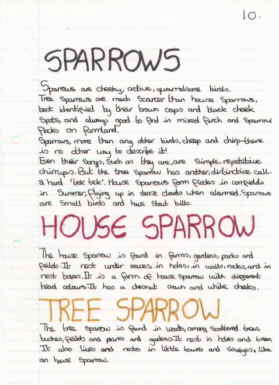 10.
SPARROWS
Sparrows are cheeky, active, quarrelsome birds.
Tree Sparrows are much Scarcer than house Sparrows,
best identified by their brown caps and black cheek
Spots, and always good to find in mixed finch and Sparrow
flocks on farmland.
Sparrows, more than any other birds, cheep and chirp-there
is no other way to describe it!
Even their Songs, Such as they are, are Simple, repetitive
chirrups. But the tree Sparrow has another, distinctive call-
a hard "tek tek". House Sparrows form flocks in cornfields
in Summer, flying up in dense clouds when alarmed. Sparrows
are Small birds and have Stout bills.
HOUSE SPARROW
The house Sparrow is found in farms, gardens, parks and
fields. It nest under eaves in holes in walls, rocks, and in
nest boxes. It is a form of house Sparrow with different
head colours. It has a chesnut crown and white cheeks.
TREE SPARROW
The tree Sparrow is found in woods, among Scattered trees,
bushes, fields and parks and gardens. It nest in holes and trees
It also lives and nests in little towns and
an house Sparrow.